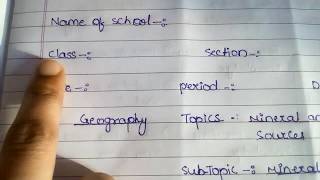 Name of school -:
Class -: section -:
period -:
Geography Topics - Mineral an
Sources
SubTopic -: Mineral